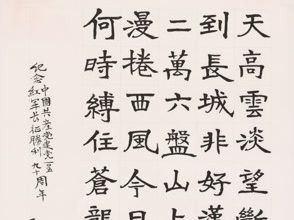 天高雲淡望斷
到長城非好漢
二萬六盤山上
漫捲西風今日
何時縛住蒼龍
中國共産党建党
紀念紅軍長征勝利九十周年